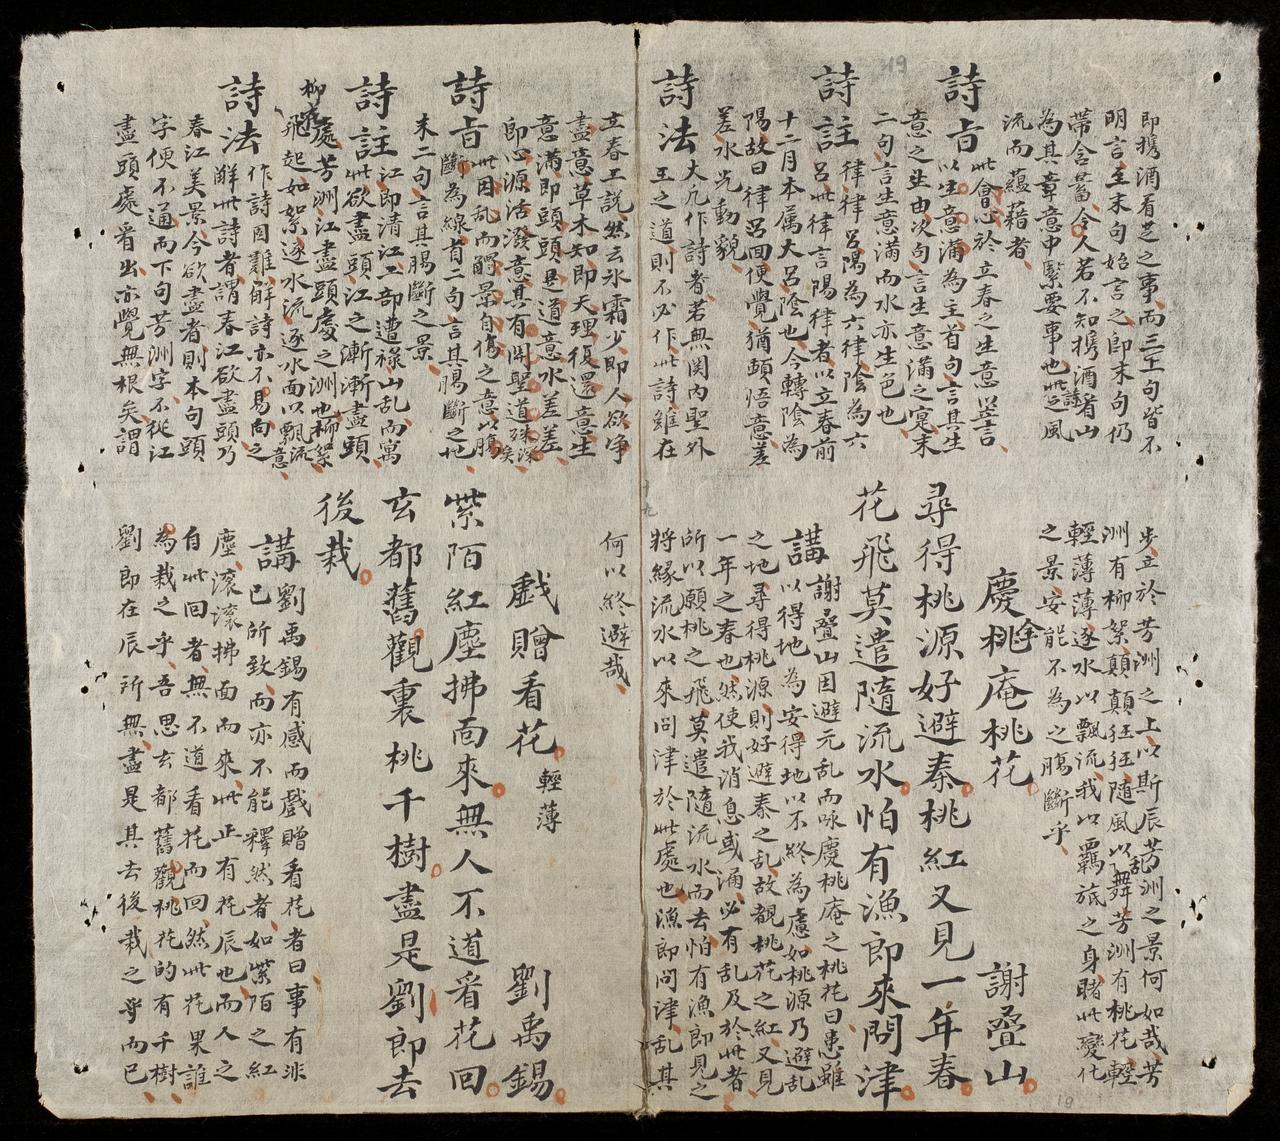 即携酒看芝之事而三士句皆不
明言至末句始言之即末句仍
帶含蓄令人若不知携酒看山
為其章意中緊要事也此詩之風
流而蘊藉者
詩旨 此會心於立春之生意以言
以生意滿為主首句言其生
意之生由次句言生意滿之寔末
二句言生意滿而水亦生色也
詩註 律律呂陽為六律陰為六
呂此律言陽律者以立春前
十二月本属大呂陰也今轉陰為
陽故曰律呂回便覺猶頓悟意差
差水光動貌
詩法 大凡作詩者若無関内聖外
王之道則不必作此詩雖在
立春王說然云氷霜少即人欲净
盡意草木知即天理復還意生
意滿即頭頭是道意水差差
即心源活潑意其有関聖道殊深矣
詩旨 此因乱而觸景自傷之意以腸
斷為線首二句言其腸斷之地
末二句言其腸斷之景
詩註 江即清江工部遭祿山乱而寓
此欲盡頭江之漸漸盡頭
處芳洲江盡頭處之洲也柳絮
柳花飛起如絮逐水流逐水面以飄流意
詩法 作詩固難解詩亦不易向之
解此詩者謂春江欲盡頭乃
春江美景今欲盡者則本句頭
字便不通而下句芳洲字不從江
盡頭處看出亦覺無根矣謂
步立於芳洲之上以斯辰芳洲之景何如哉芳
洲有柳絮顛顛狂狂随風以乱舞芳洲有桃花輕
輕薄薄逐水以飄流我以羈旅之身睹此變化
之景安能不為之腸斷乎
慶全桃庵桃花 謝疊山
尋得桃源好避秦桃紅又見一年春
花飛莫遣隨流水怕有漁郎來問津
講 謝疊山因避元乱而咏慶桃庵之桃花曰患雖
以得地為安得地以不終為慮如桃源乃避乱
之地尋得桃源則好避秦之乱故覩桃花之紅又見
一年之春也然使我消息或涌必有乱及於此者
所以願桃之飛莫遣隨流水而去怕有漁郎見之
將緣流水以來问津於此處也漁郎问津乱其
何以終避哉
戱贈看花 輕薄 劉禹錫
紫陌紅塵拂面來無人不道看花回
玄都舊觀裏桃千樹盡是劉郎去
後栽
講 劉禹錫有感而戲贈看花者曰事有非
已所致而亦不能釋然者如紫陌之紅
塵滚滚拂面而來此正有花辰也而人之
自此回者無不道看花而回然此花果誰
為栽之乎吾思玄都舊觀桃花的有千樹
劉郎在辰所無盡是其去後栽之㝵而已